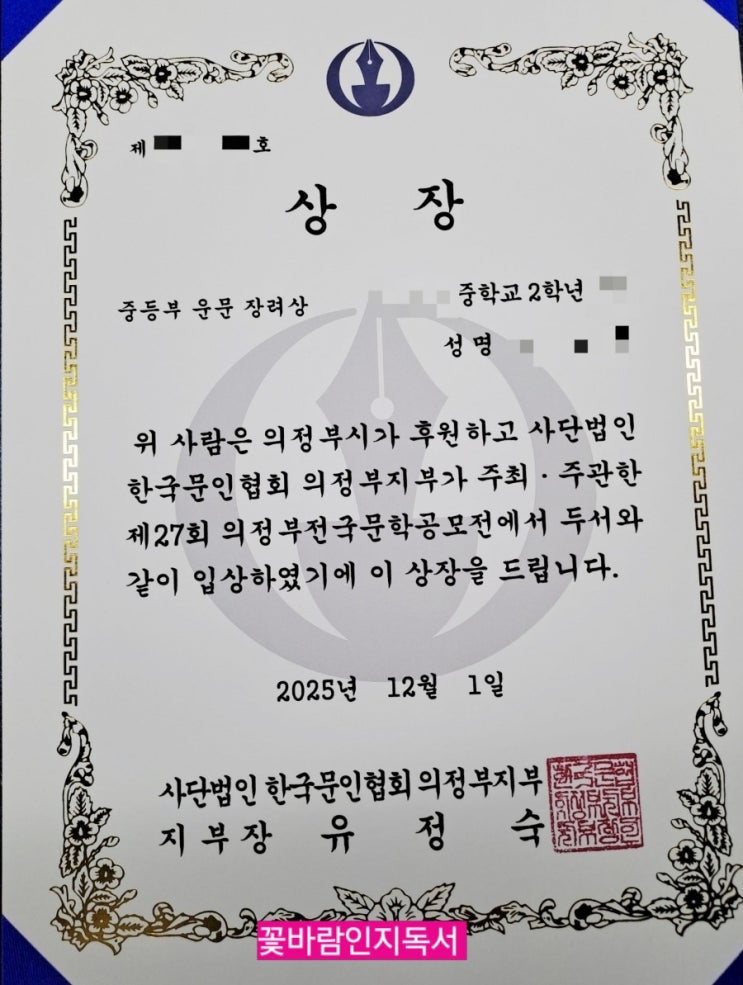 제 호
상 장
중등부 운문 장려상 중학교 2학년
성명
위 사람은 의정부시가 후원하고 사단법인
한국문인협회 의정부지부가 주최 · 주관한
제27회 의정부전국문학공모전에서 두서와
같이 입상하였기에 이 상장을 드립니다.
2025년 12월 1일
사단법인 한국문인협회 의정부지부
지부장 유정숙
꽃바람인지독서